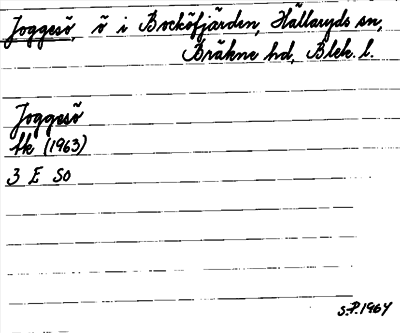 Joggesö, ö i Bocköfjärden, Hällaryds sn,
Bräkne hd, Blek. l.
Joggesö
tk (1963)
3 E SO
S.P. 1964